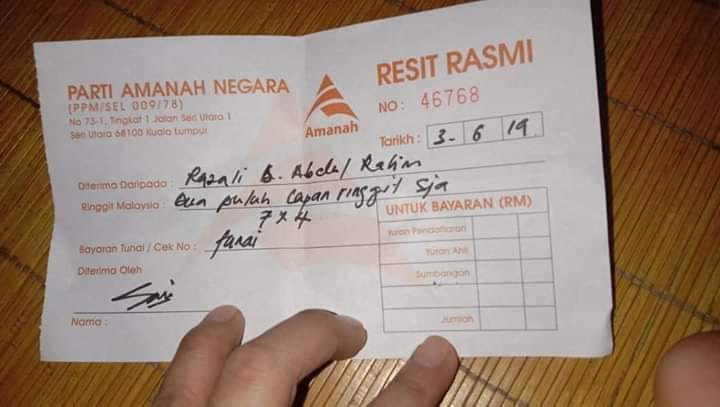 PARTI AMANAH NEGARA
(PPM/SEL 009/78)
No 73-1, Tingkat 1 Jalan Seri Utara 1
Seri Utara 68100 Kuala Lumpur
Amanah
RESIT RASMI
NO: 46768
Tarikh: 3- 6 19
Diterima Daripada: Razali B. Abdul Rahim
Ringgit Malaysia: Dua puluh lapan ringgit Sja
7 x 4
Bayaran Tunai / Cek No: Tunai
Diterima Oleh
Nama:
UNTUK BAYARAN (RM)
Yuran Pendaftaran
Yuran Ahli
Sumbangan
Jumlah